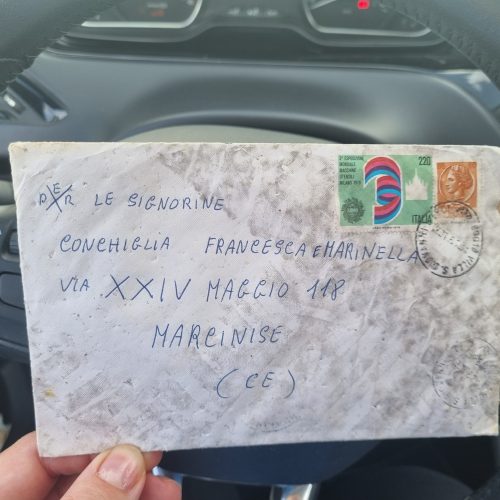 3ª ESPOSIZIONE
MONDIALE
MACCHINE
UTENSILI
MILANO 1979
220
ITALIA
PER LE SIGNORINE
CONCHIGLIA FRANCESCA E MARINELLA
VIA XXIV MAGGIO 118
MARCINISE
(CE)